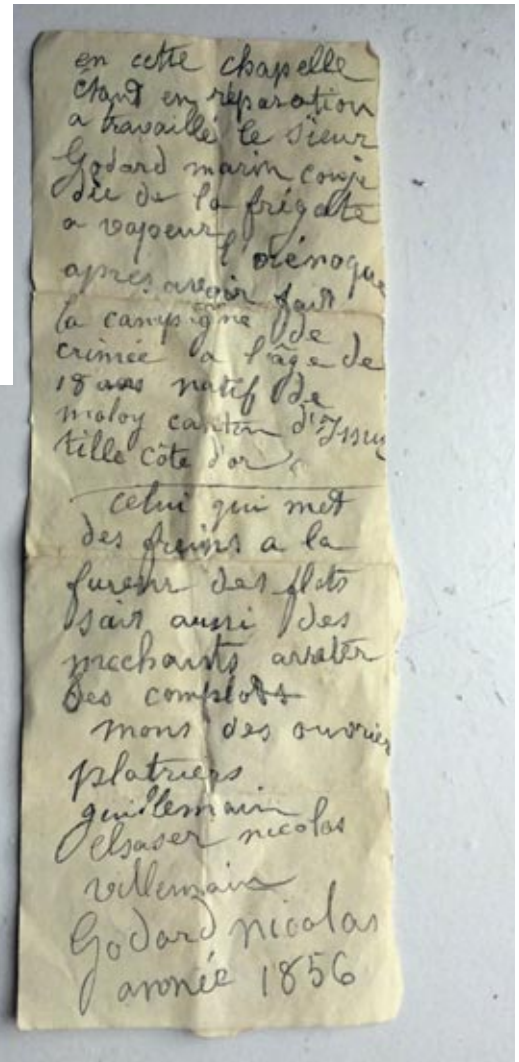 en cette chapelle
étant en réparation
a travaillé le sieur
Godard marin conje
diée de la frégate
a vapeur
après avoir fait
la campagne de
crimée a l'âge de
18 ans natif de
moloy canton d'Issur
tille côte d'or
celui qui met
des freins a la
fureur des flots
sait aussi des
mechants arreter
des complots
des ouvrier
platriers
guillemain
elsaser nicolas
villemain
Godard nicolas
année 1856